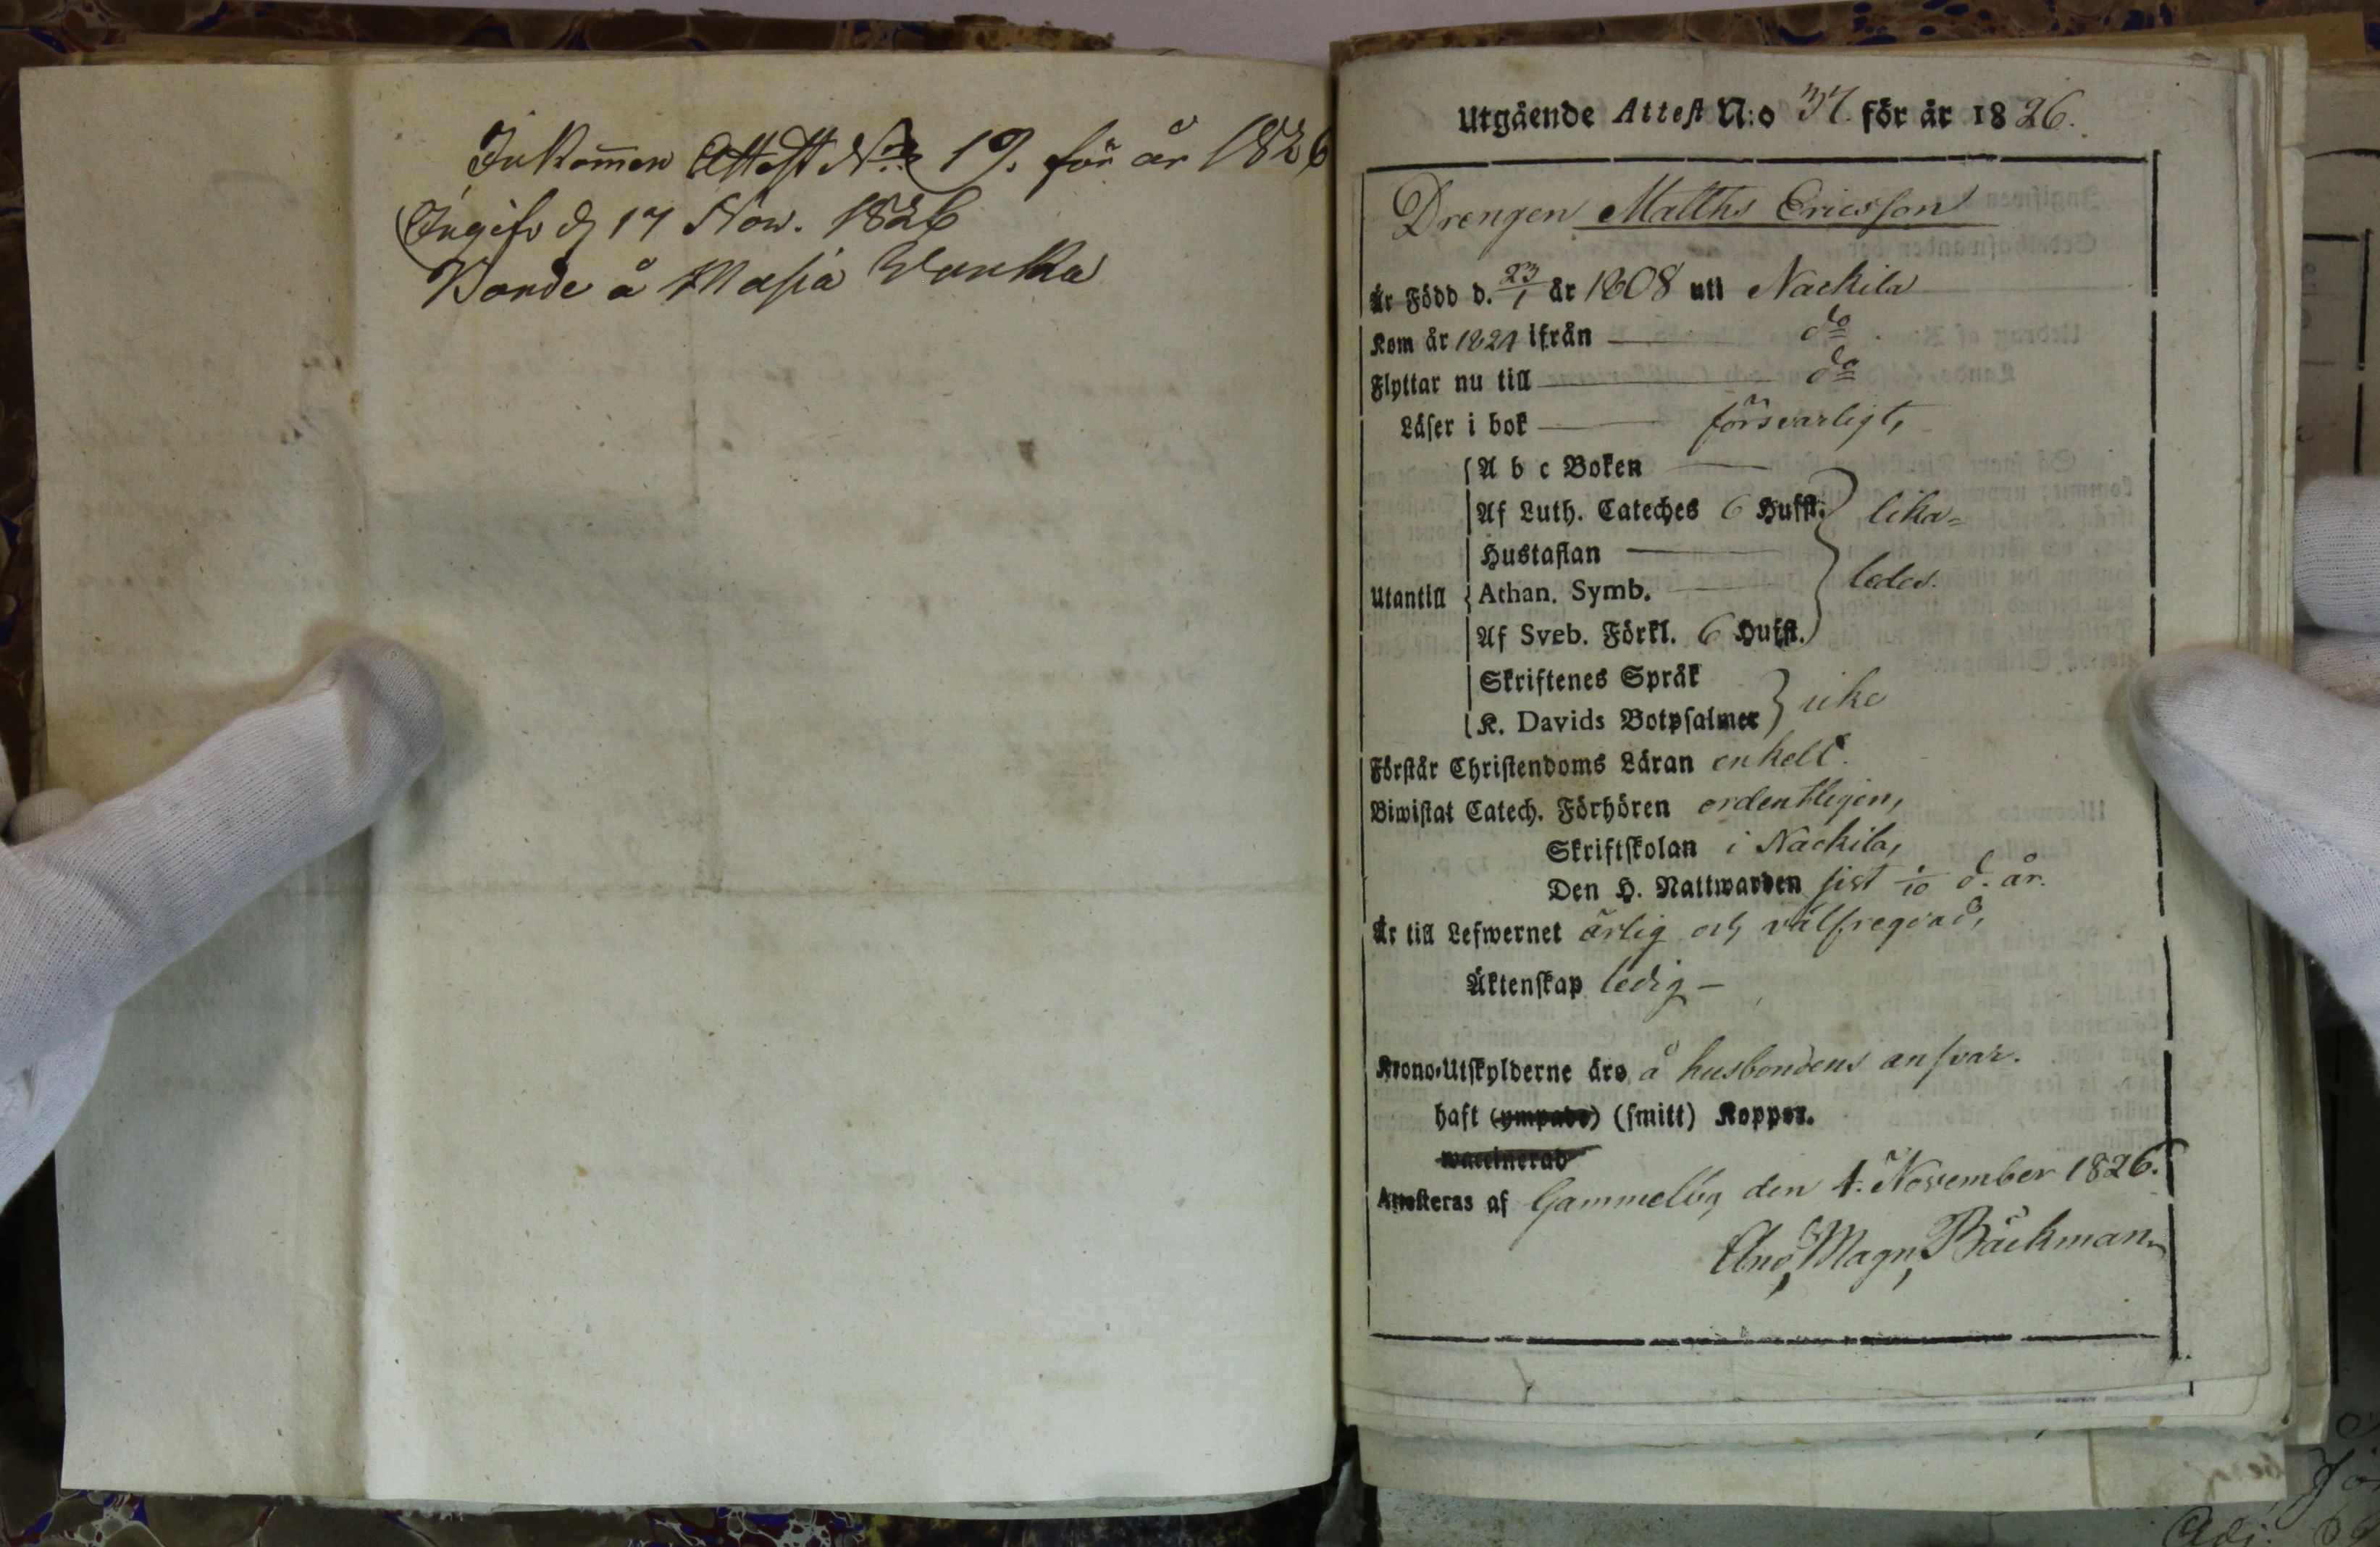 Inkommen Attest No 19. för år 1826
Ingifv d 17 Nov. 1826
Bonde å Masia
Utgående Attest N:o 37. för år 1826.
Drengen Matths Ericsson
Är Född d. 23/1 år 1808 uti Nackila
Kom år 1821 ifrån — do
Flyttar nu till — do
Läser i bok — försvarligt,
A b c Boken —
Af Luth. Cateches 6 Hufst. lika-
Hustaflan —
ledes.
Utantill Athan. Symb. —
Af Sveb. Förkl. 6 Hufst.
Skriftenes Språk
K. Davids Botpsalmer icke
Förstår Christendoms Läran enkelt.
Biwistat Catech. Förhören ordentligen,
Skriftskolan i Nackila,
Den H. Nattwarden sist 1/10 d. år.
Är till Lefwernet ärlig och välfregdad,
Äktenskap ledig —
Krono-Utskylderne äro å husbondens ansvar.
haft (ympade) (smitt) Koppor.
waccinerad
Attesteras af Gammelby den 1. November 1826.
And. Magn. Bäckman